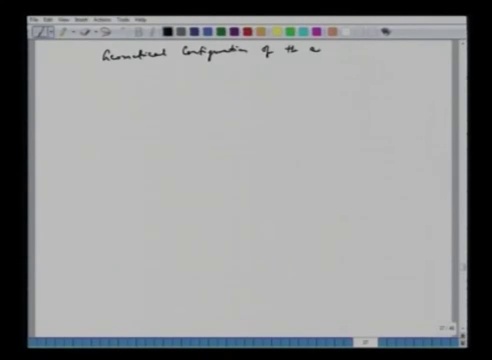 File Edit View Insert Actions Tools Help
Geometrical Configuration of th a